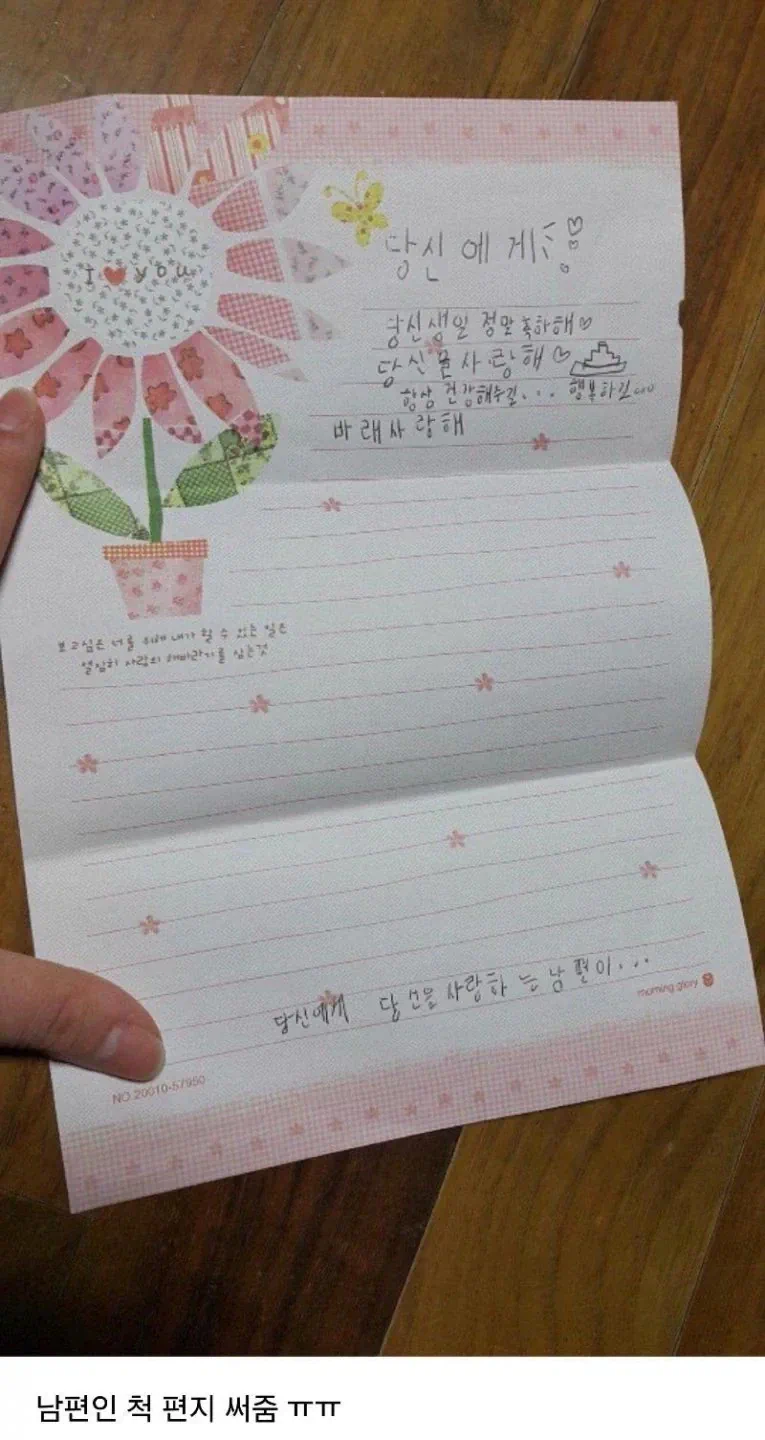 I ♥ you
당신에게
당신생일 정말 축하해♡
당신을사랑해♡
항상 건강해주길... 행복하길
바래사랑해
보고싶은 너를 위해 내가 할 수 있는 일은
열심히 사랑의 해바라기를 심는것
당신에게 당신을 사랑하는 남편이...
morning glory
NO.20010-57950
남편인 척 편지 써줌 ㅠㅠ